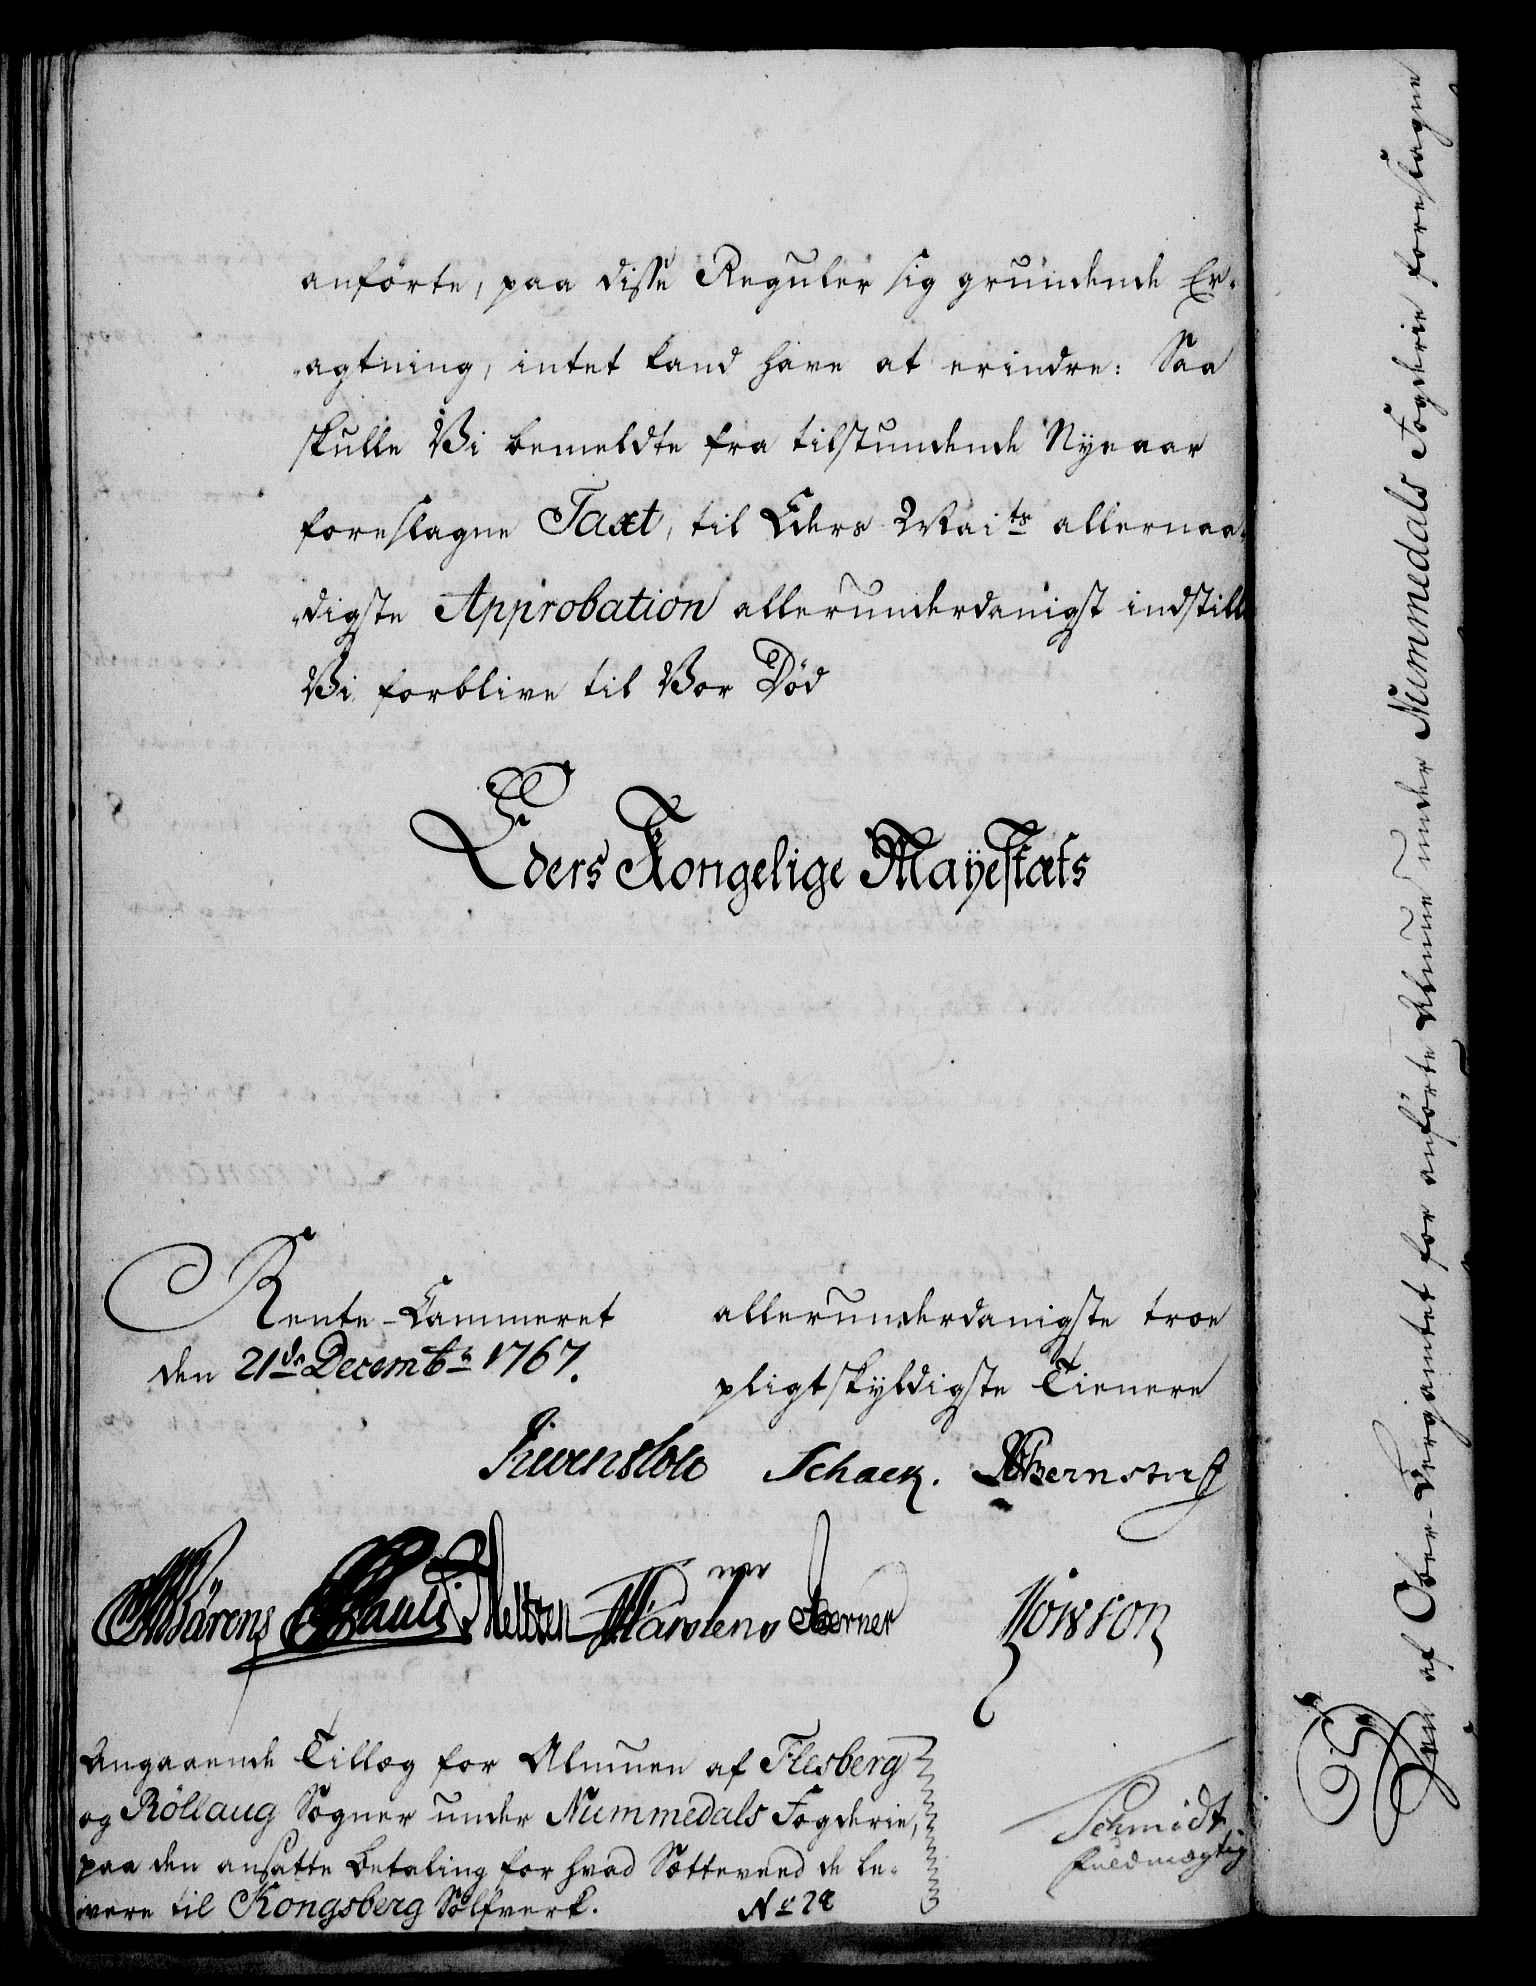 anførte, paa disse Reguler sig grundende Er-
-agtning, intet kand have at erindre: Saa
skulle Vi bemeldte fra tilstundende Nyeaar
foreslagne Taxt, til Eders Mai ts allernaa-
-digste Approbation allerunderdanigst indstille
Vi forblive til Vor Død
Eders Kongelige Mayestæts
Rente-Cammeret
den 21 de Decemb r 1767.
allerunderdanigste troe
pligtskyldigste Tienere
Reventlow Schack. Bernstorff
Bärens Pauli Meltzen Karstens Berner
Angaaende Tillæg for Almuen af Flesberg
og Röllaug Sogner under Nummedals Fogderie,
paa den ansatte Betaling for hvad Sætteved de le-
vere til Kongsberg Sølfverk. No 28
Schmidt
fuldmægtig
Den af Ober-Bergamtet for anførte Almue under Nummedals Fogderie foreslagne